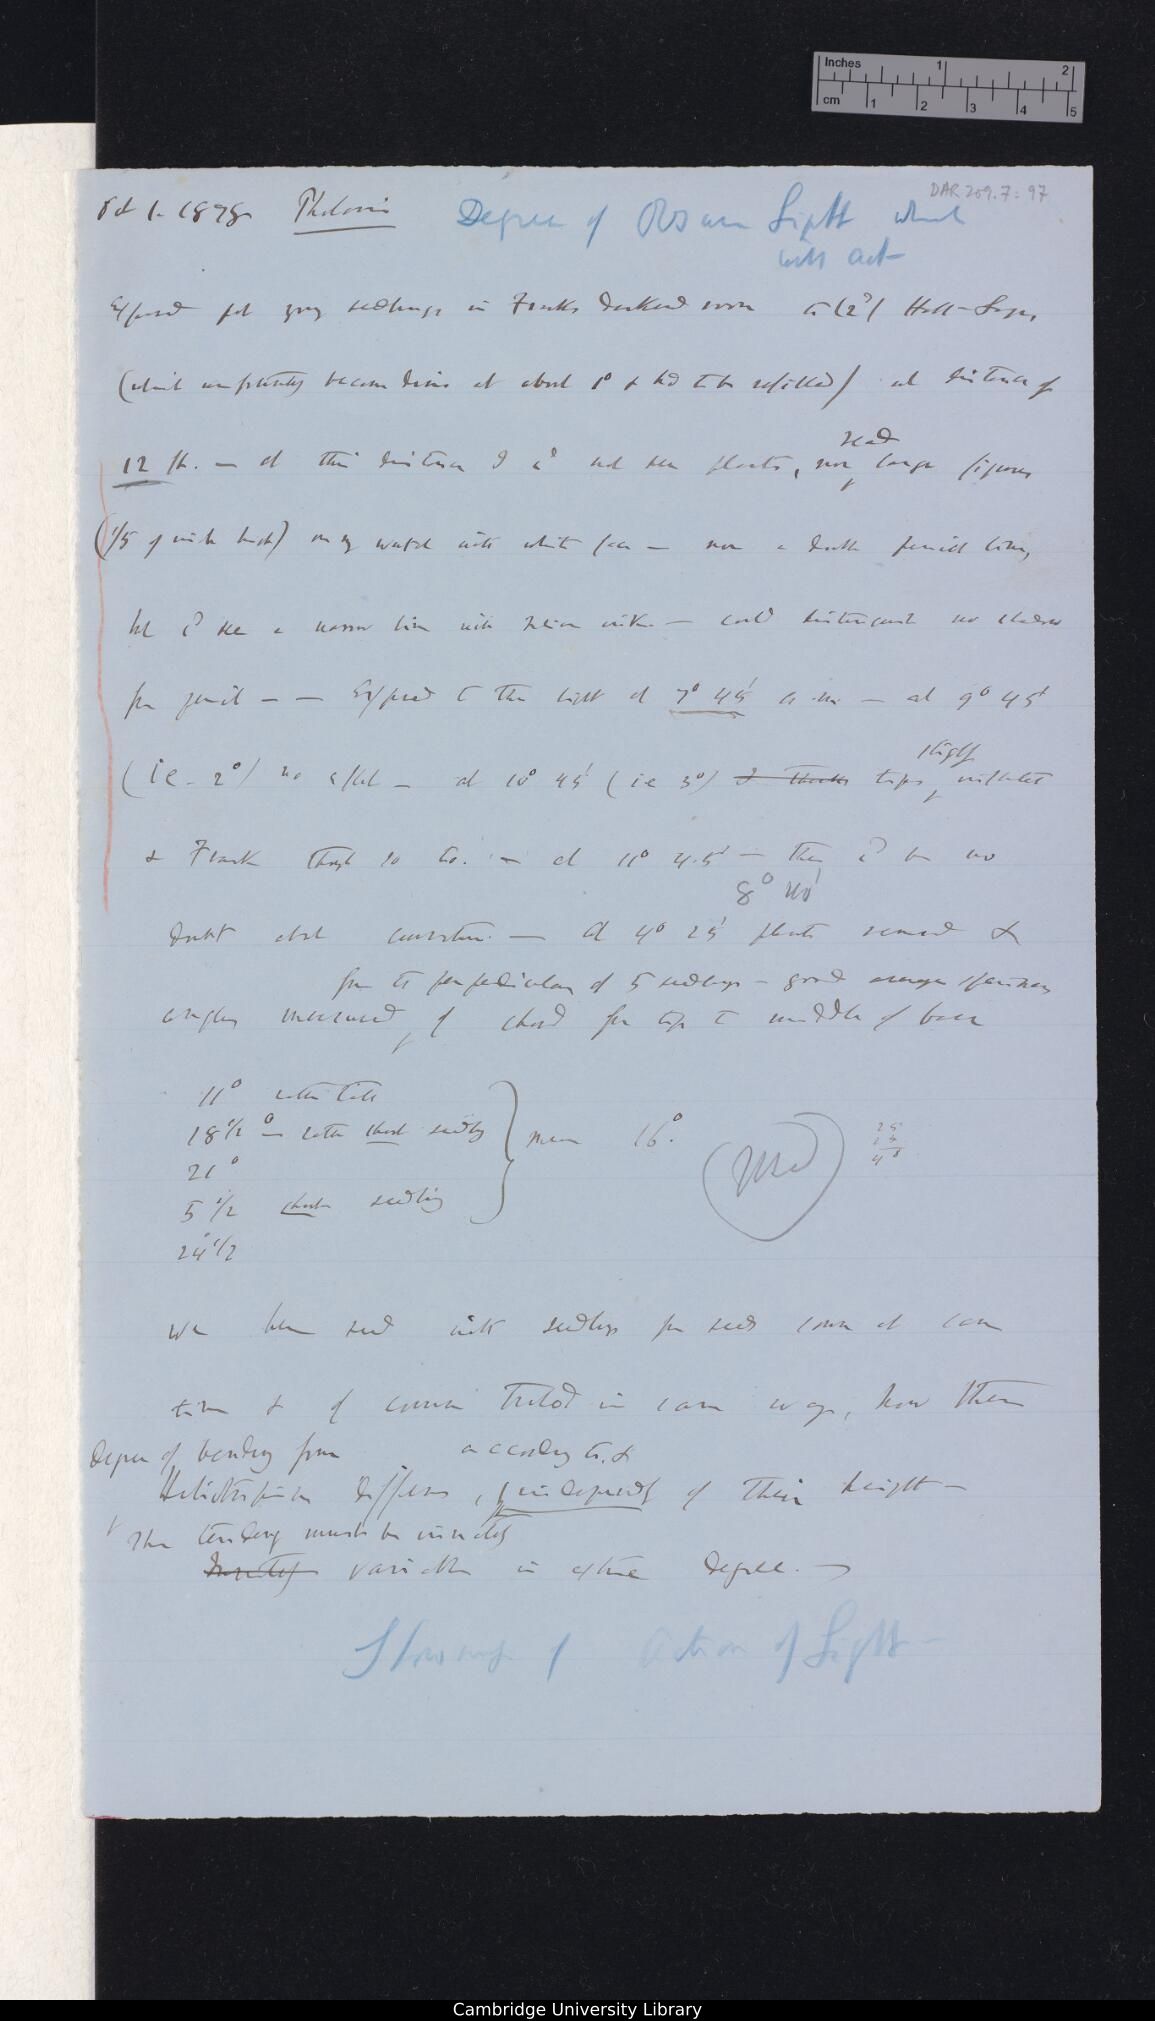 Inches 1 2
cm 1 2 3 4 5
DAR 209.7: 97
Oct 1. 1878 Phalaris Degree of Obscure Light which
will act
Exposed pot young seedlings in Franks darkened room to (2?)
(which became dim at about 1° & had to be refilled) at distance of
read
12 ft. — at this distance I cd not see plants, nor large figures
(1/5 of inch high) on my watch with white face — nor a double pencil line,
but cd see a narrow line with Indian ink — could distinguish no shadow
from pencil — — Exposed to this light at 7° 45' a.m — at 9° 45'
slightly
(ie. 2°) no effect — at 10° 45' (ie 3°) I think tips inflected
& Frank thought so too. — at 11° 45' — there cd be no
8° 40'
doubt about curvature. — At 4° 25' plants removed &
from the perpendicular of 5 seedlings — good average specimens
angles measured of chord from tip to middle of base
11° rather tall
18 1/2° — rather short seedling
21°
5 1/2 short seedling
mean 16°.
(Used)
24 1/2
We have seen with seedlings from seeds sown at same
time & of course treated in same way, how their
degree of bending from according to, &
Heliotropism differs, independently of their height —
The tendency must be innately
variable in extreme degree. —
Slowness of action of Light —
Cambridge University Library